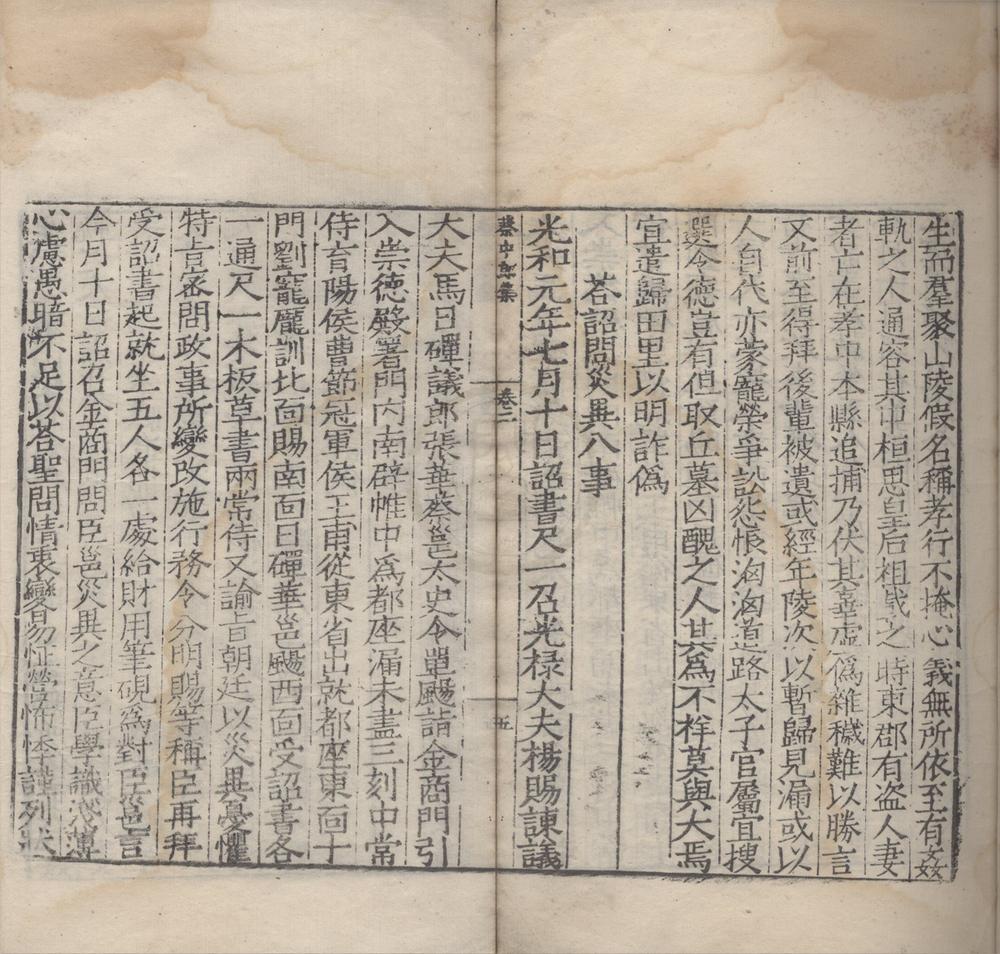 生而羣聚山陵假名稱孝行不掩心義無所依至有姦
軌之人通容其中桓思皇后祖載之時東郡有盗人妻
者亡在孝中本縣追捕乃伏其辜虚僞雜穢難以勝言
又前至得拜後輩被遺或經年陵次以暫歸見漏或以
人自代亦蒙寵榮爭訟怨恨洶洶道路太子官屬宜搜
選令德豈有但取丘墓凶醜之人其爲不祥莫與大焉
宜遣歸田里以明詐僞
荅詔問災異八事
光和元年七月十日詔書尺一召光禄大夫楊賜諫議
蔡中郎集
卷二
五
大夫馬日磾議郎張華蔡邕太史令單颺詣金商門引
入崇德殿署門内南辟帷中爲都座漏未盡三刻中常
侍育陽侯曹節冠軍侯王甫從東省出就都座東面十
門劉寵龐訓北面賜南面日磾華邕颺西面受詔書各
一通尺一木板草書兩常侍又諭旨朝廷以災異憂懼
特旨密問政事所變改施行務令分明賜等稱臣再拜
受詔書起就坐五人各一處給財用筆硯爲對臣邕言
今月十日詔召金商門問臣邕災異之意臣學識淺薄
心慮愚暗不足以荅聖問情衷變易怔營怖悸謹列狀